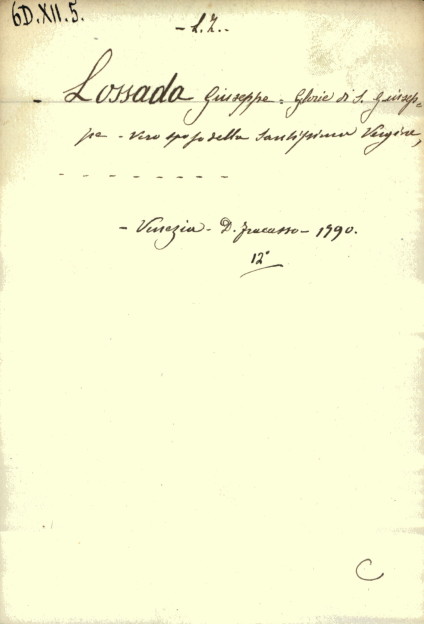 6D.XII.5.
- L.Z..
- Lossada Giuseppe = Glorie di S. Giusep-
pe - vero sposo della Santissima Vergine,
- - - - - - - - -
- Venezia - D. Fracasso - 1790.
12°
C